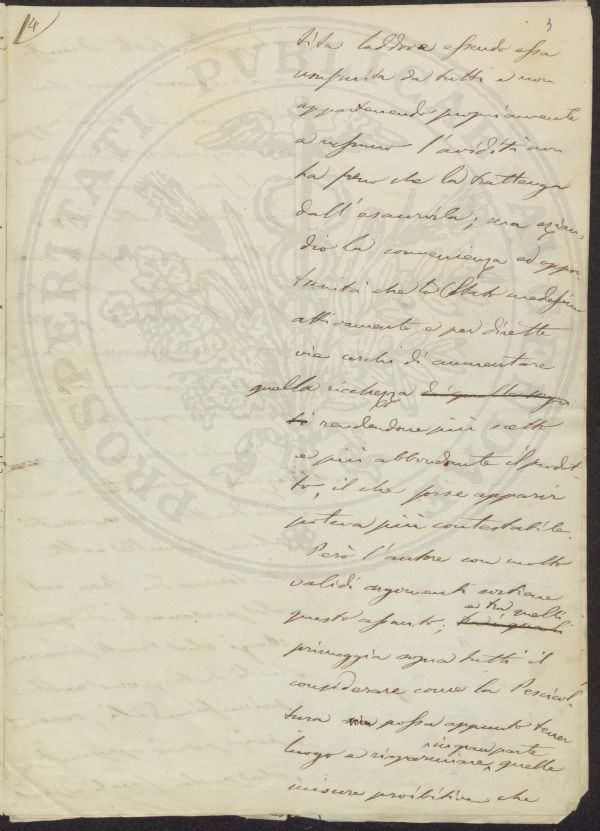 14
3
tita laddove essendo essa
usufruita da tutti e non
appartenendo propriamente
a nessuno l'avidità non
ha freno che la trattenga
dall'esaurirla; ma ezian-
dio la convenienza ed oppor-
tunità che lo Stato medesimo
attivamente e per dirette
vie cerchi di aumentare
quella ricchezza
rendendone più scelto
e più abbondante il prodot-
to, il che forse apparir
poteva più contestabile.
Però l'autore con molto
validi argomenti sostiene
questo assunto; e tra quelli
primeggia sopra tutti il
considerare come la Piscicol-
tura possa appunto tener
luogo e risparmiare in gran parte quelle
misure proibitive che
PROSPERITATI PVBLICAE AVGENDAE